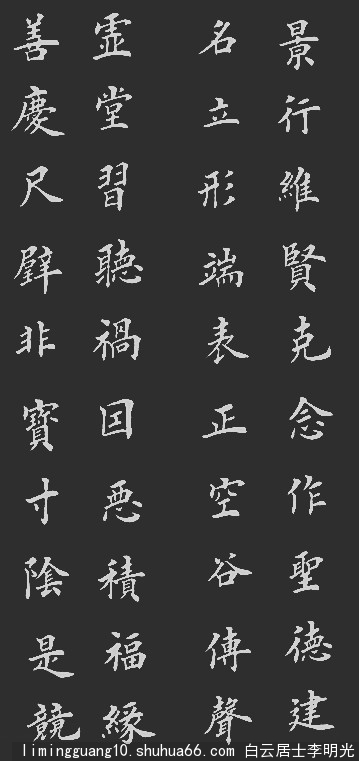 景行維賢克念作聖德建
名立形端表正空谷傳聲
虛堂習聽禍因悪積福緣
善慶尺璧非寶寸陰是競
limingguang10.shuhua66.com 白云居士李明光